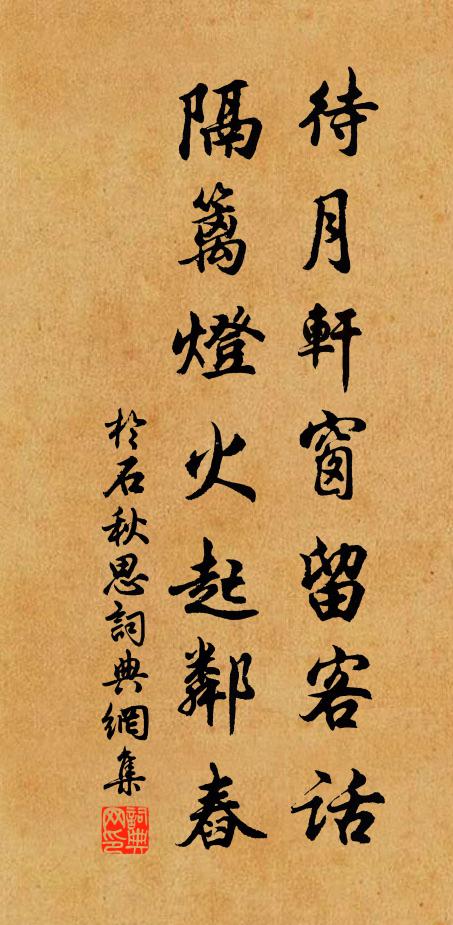 待月軒窗留客話
隔籬燈火起鄰舂
於石秋思詞典網集
詞典網印